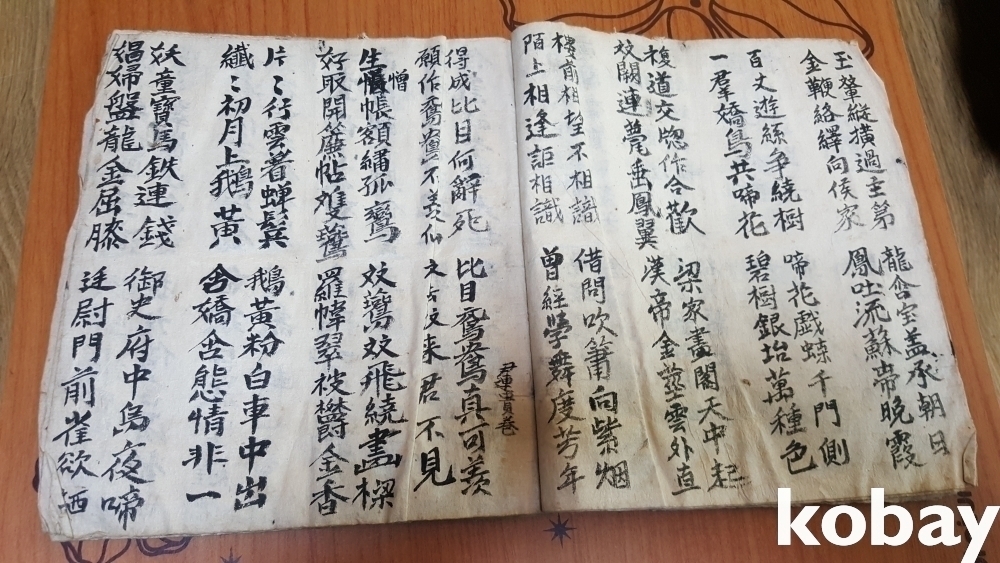 玉輦縱橫過主第
金鞭絡繹向侯家
龍含宝盖承朝日
鳳吐流蘇帶晚霞
百丈遊絲爭繞樹
一羣嬌鳥共啼花
啼花戯蝶千門側
碧樹銀坮萬種色
複道交窓作合歡
双闕連甍垂鳳翼
梁家畵閣天中起
漢帝金莖雲外直
樓前相望不相
陌上相逢詎相識
借問吹簫向紫烟
曾經學舞度芳年
得成比目何辭死
願作鴛鴦不羨仙
比目鴛鴦真可羨
双去双来君不見
生憎帳額繡孤鸞
好取開簾帖雙
双飛繞畵樑
羅幃翠被欝金香
片〻行雲着蟬鬂
纖〻初月上鵝黃
鵝黃粉白車中出
含嬌含態情非一
妖童寶馬鉄連錢
娼婦盤龍金屈膝
御史府中烏夜啼
廷尉門前雀欲栖
kobay